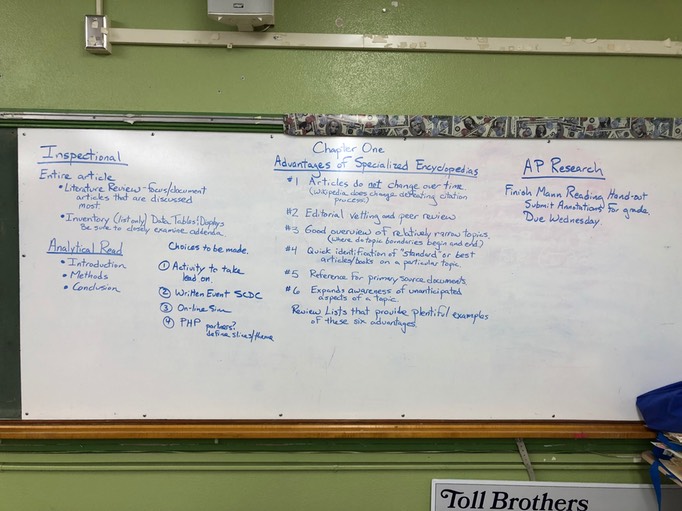 Inspectional
Entire article
• Literature Review - focus/document
articles that are discussed
most.
• Inventory (list only) Data, Tables,
Be sure to closely examine addenda.
Analytical Read
• Introduction
• Methods
• Conclusion
Choices to be made.
① Activity to take
lead on.
② Written Event SCDC
③ On-line Sim
④ PHP partners?
define slices/theme
Chapter One
Advantages of Specialized Encyclopedias
#1 Articles do not change over time
(Wikipedia does change, defeating citation
process)
#2 Editorial vetting and peer review
#3 Good overview of relatively narrow topics
(where do topic boundaries begin and end)
#4 Quick identification of "standard" or best
articles/books on a particular topic.
#5 Reference for primary source documents
#6 Expands awareness of unanticipated
aspects of a topic.
Review Lists that provide plentiful examples
of these six advantages.
AP Research
Finish Mann Reading Hand-out
Submit Annotations for grade.
Due Wednesday
Toll Brothers